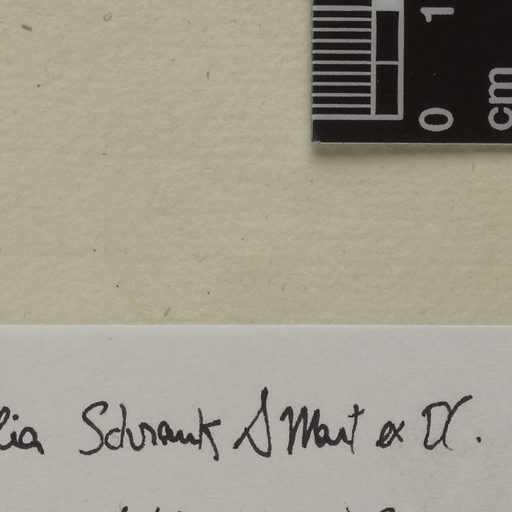 1
0
cm
lia Schrank & Mart ex DC.